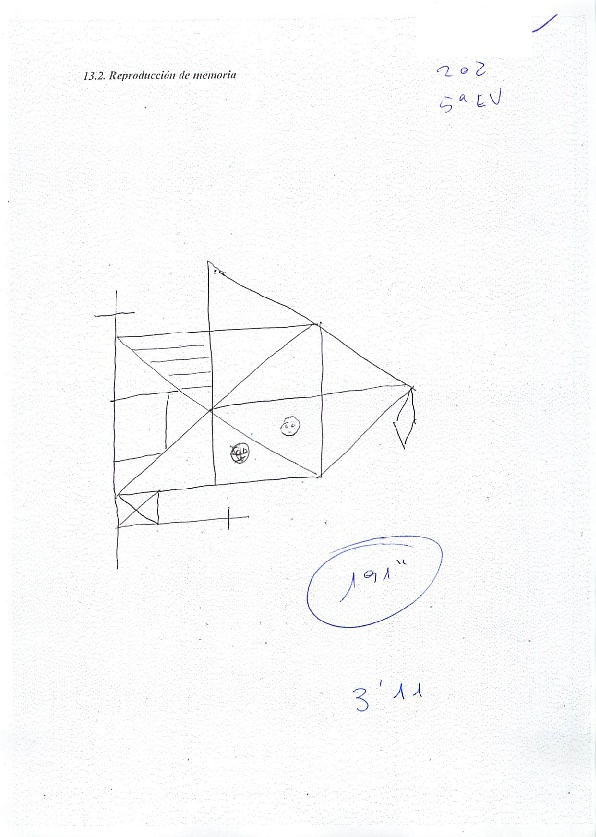 13.2. Reproducción de memoria
202
5ª EV
191"
3'11